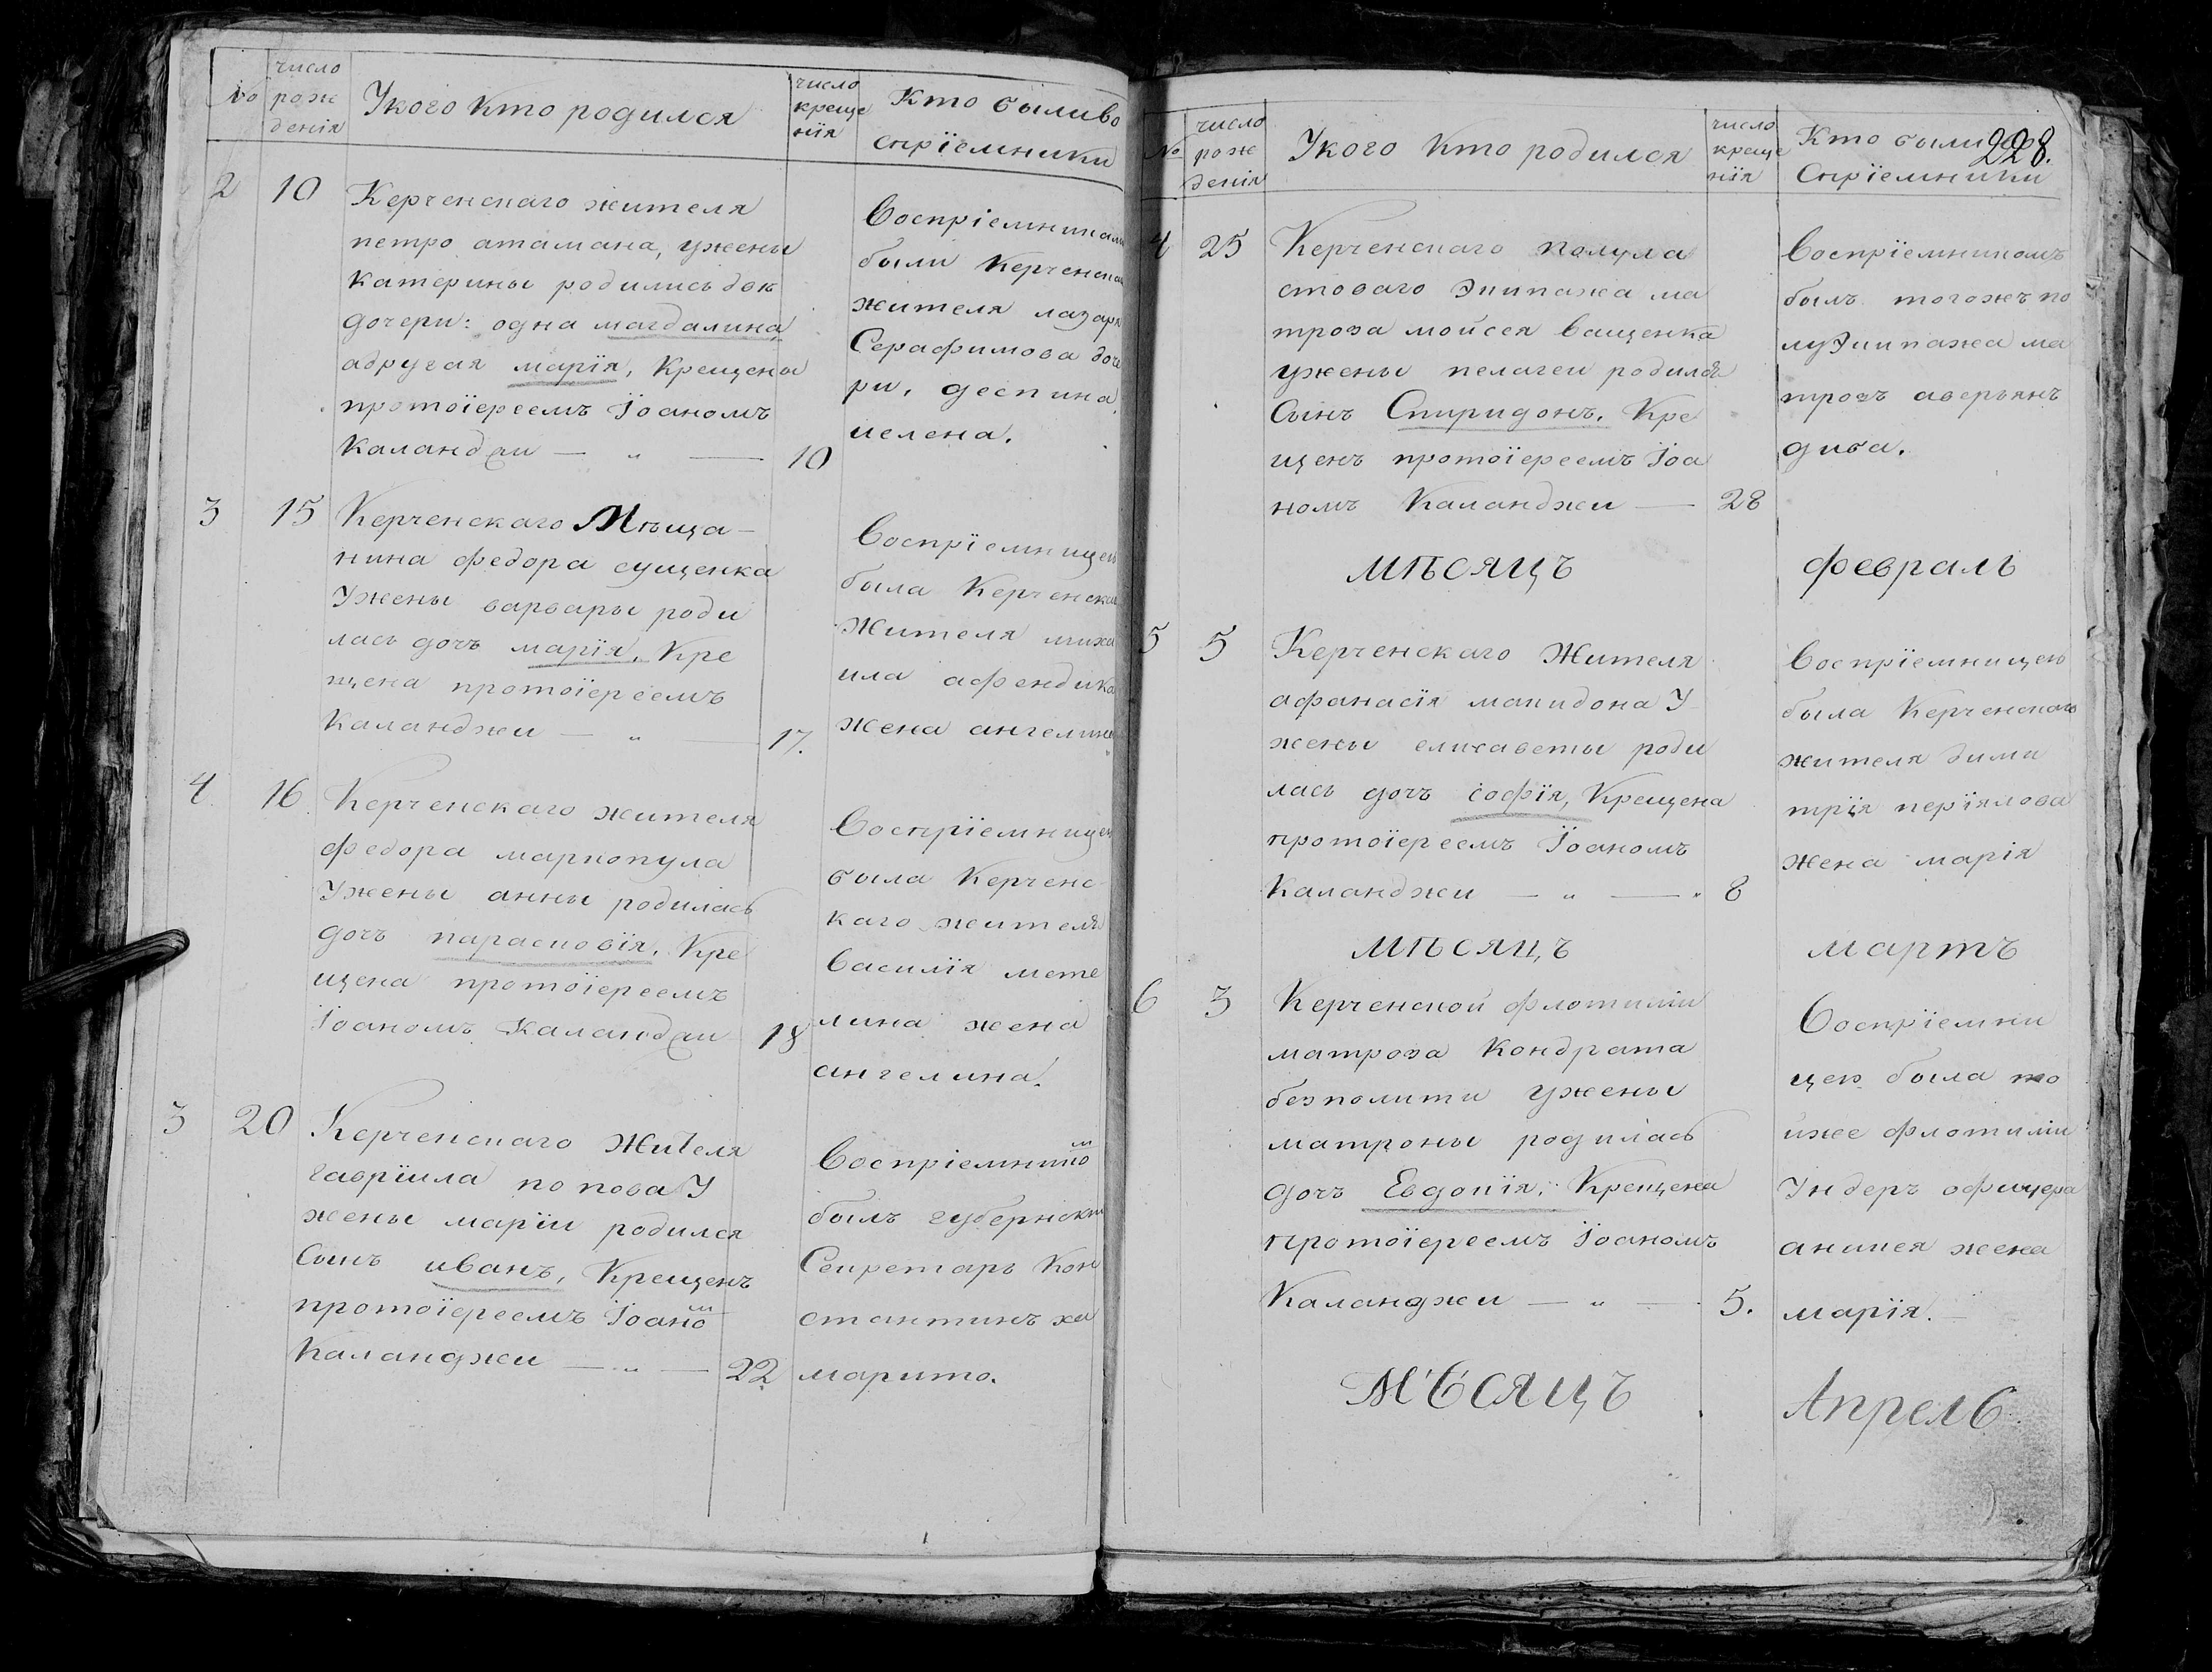 No
число
рож
денія
У кого кто родился
число
креще
нія
Кто были во
спріемники
2
10
Керченскаго жителя
петро атамана, ужены
катерины родились две
дочери: одна магдалина,
адругая марія, крещены
протоіереемъ Іоаномъ
Каланджи — „ — 10
Воспріемниками
были Керченскаго
жителя лазаря
Серафимова доче
ри, деспина,
иелена.
3
15
Керченскаго Мѣща–
нина федора сущенка
Ужены варвары роди
лась дочь марія, Кре
щена протоіереемъ
Каланджи — „ — 17.
Воспріемницею
была Керченскаго
жителя миха
ила афендика
жена ангелина
4
16
Керченскаго жителя
федора маркопула
Ужены анны родилась
дочь парасковія, Кре
щена протоіереемъ
Іоаномъ Каланджи 18
Воспріемницею
была Керченс
каго жителя
василія мете
лина жена
ангелина.
3
20
Керченскаго Жителя
гавріила попова У
жены маріи родился
Сынъ иванъ, Крещенъ
протоіереемъ Іоано м
Каланджи — „ — 22
Воспріемнико м
былъ губернскій
Секретарь Кон
стантинъ ха
марито.
228.
No
число
рож
денія
У кого кто родился
число
креще
нія
Кто были во
спріемники
4
25
Керченскаго полула
стоваго Экипажа ма
троза мойсея ващенка
ужены пелагеи родился
Сынъ Спиридонъ, Кре
щенъ протоіереемъ Іоа
номъ Каланджи — 28
Воспріемникомъ
былъ тогожъ по
луэкипажа ма
трозъ аверьянъ
дива.
мѣсяцъ февраль
5
5
Керченскаго Жителя
афанасія македона У
жены елисаветы роди
лась дочь софія, Крещена
протоіереемъ Іоаномъ
Каланджи — „ — „ 8
Воспріемницею
была Керченскаго
жителя дими
трія періялова
жена марія
мѣсяцъ мартъ
6
3
Керченской флотиліи
матроза Кондрата
безполити ужены
матроны родилась
дочь Евдокія, Крещена
протоіереемъ Іоаномъ
Каланджи — „ — 5.
Воспріемни
цею была то
йже флотиліи
Ундеръ офицера
аникея жена
марія.
мѣсяцъ Апрель